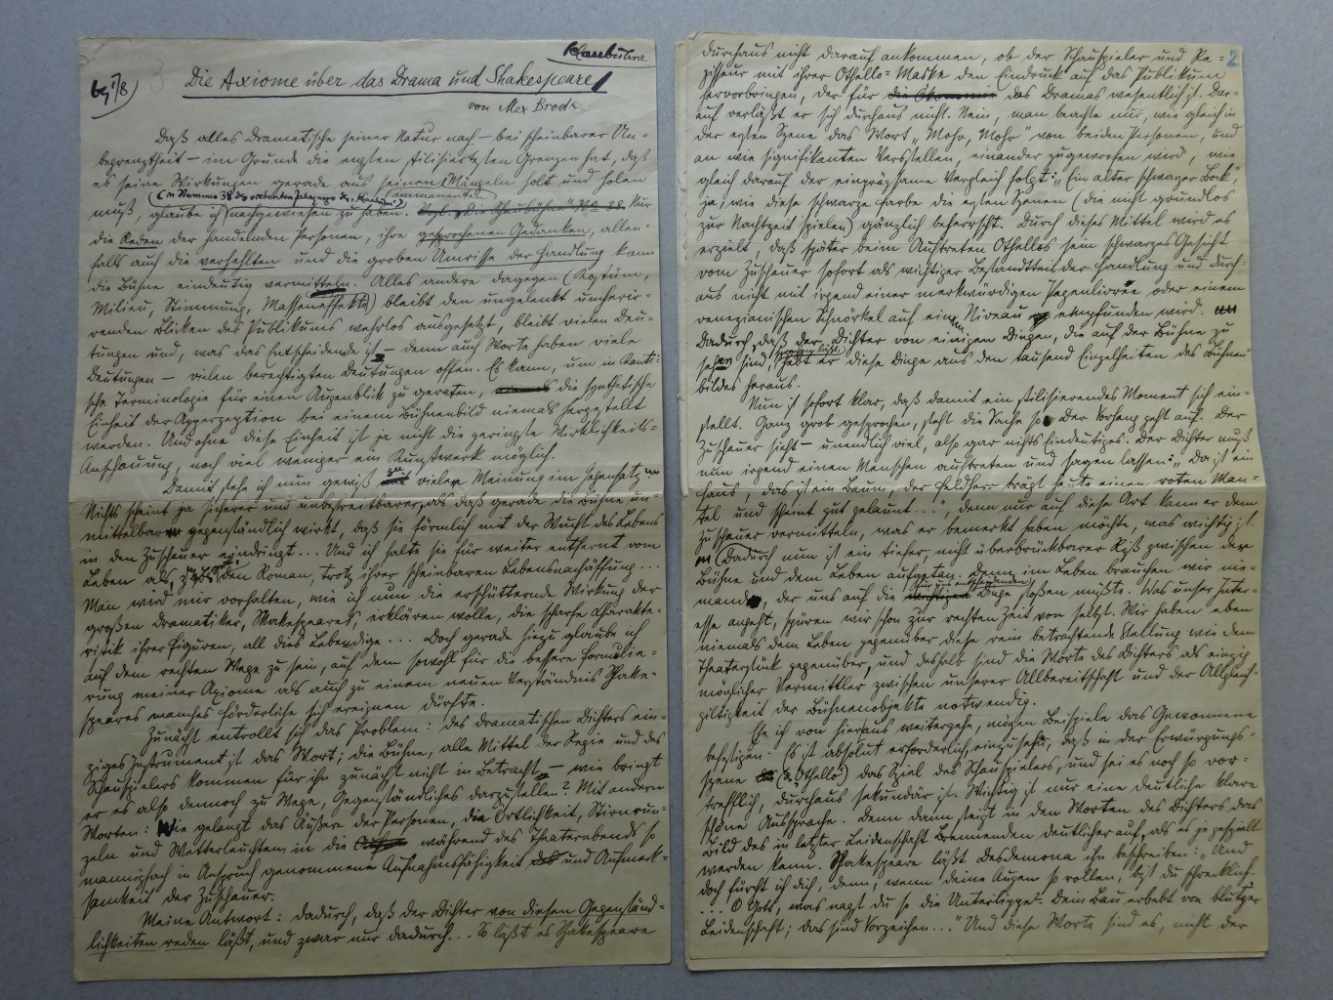 Schaubühne
bg 7/8
Die Axiome über das Drama und Shakespeare
von Max Brod.
Daß alles Dramatische seiner Natur nach – bei scheinbarer Un-
begrenztheit – im Grunde die engsten stilisiertesten Grenzen hat, daß
es seine Wirkungen gerade aus seinen Mängeln holt und holen
(in Nummer 38 des Jahrgangs der)
muß, glaube ich nachgewiesen zu haben. Nur
die Reden der handelnden Personen, ihre gesprochenen Gedanken, allen-
falls auch die verhehlten und die groben Umrisse der Handlung kann
die Bühne eindeutig vermitteln. Alles andere dagegen (Kostüm,
Milieu, Stimmung, Masseneffekte) bleibt den ungelenkt umherir-
renden Blicken des Publikums wehrlos ausgesetzt, bleibt vielen Deu-
tungen und, was das Entscheidende ist – denn auch Worte haben viele
Deutungen – vielen berechtigten Deutungen offen. Es kann, um in Kanti-
sche Terminologie für einen Augenblick zu geraten, die synthetische
Einheit der Apperzeption bei einem Bühnenbild niemals hergestellt
werden. Und ohne diese Einheit ist ja nicht die geringste Wirklichkeits-
Anschauung, noch viel weniger ein Kunstwerk möglich.
Damit stehe ich nun gewiß zu vieler Meinung im Gegensatz.
Nichts scheint ja sicherer und unbestreitbarer, als daß gerade die Bühne un-
mittelbar gegenständlich wirkt, daß sie förmlich mit der Wucht des Lebens
in den Zuschauer eindringt... Und ich halte sie für weiter entfernt vom
Leben als den Roman, trotz ihrer scheinbaren Lebensnachäffung...
Man wird mir vorhalten, wie ich nun die erschütternde Wirkung der
großen Dramatiker, Shakespeares, erklären wolle, die scharfe Charakte-
ristik ihrer Figuren, all dies Lebendige... Doch gerade hiezu glaube ich
auf dem rechten Wege zu sein, auf dem sowohl für die bessere Formulie-
rung meiner Axiome als auch zu einem neuen Verständnis Shake-
speares manches Förderliche sich ereignen dürfte.
Zunächst entrollt sich das Problem: des dramatischen Dichters ein-
ziges Instrument ist das Wort; die Bühne, alle Mittel der Regie und des
Schauspielers kommen für ihn zunächst nicht in Betracht – wie bringt
er es also dennoch zu Wege, Gegenständliches darzustellen? Mit andern
Worten: Wie gelangt das Äußere der Personen, die Örtlichkeit, Stirnrun-
zeln und Wetterleuchten in die während des Theaterabends so
mannigfach in Anspruch genommene Aufnahmsfähigkeit und Aufmerk-
samkeit der Zuschauer.
Meine Antwort: dadurch, daß der Dichter von diesen Gegenständ-
lichkeiten reden läßt, und zwar nur dadurch... So läßt es Shakespeare
2
durchaus nicht darauf ankommen, ob der Schauspieler und Re-
gisseur mit ihrer Othello-Maske den Eindruck auf das Publikum
hervorbringen, der für die Ökonomie das Dramas wesentlich ist. Dar-
auf verläßt er sich durchaus nicht. Nein, man beachte nur, wie gleich in
der ersten Szene das Wort „Mohr, Mohr" von beiden Personen, und
an wie signifikanten Versstellen, einander zugeworfen wird, wie
gleich darauf der einprägsame Vergleich folgt: „Ein alter schwarzer Bock",
ja, wie diese schwarze Farbe die ersten Szenen (die nicht grundlos
zur Nachtzeit spielen) gänzlich beherrscht. Durch dieses Mittel wird es
erzielt, daß später beim Auftreten Othellos sein schwarzes Gesicht
vom Zuschauer sofort als wichtiger Bestandteil der Handlung und durch-
aus nicht mit irgend einer merkwürdigen Pagenlivrée oder einem
venezianischen Schnörkel auf ein Niveau empfunden wird.
Dadurch, daß der Dichter von einigen Dingen, die auf der Bühne zu
sehen sind, hebt er diese Dinge aus den tausend Einzelheiten des Bühnen-
bildes heraus.
Nun ist sofort klar, daß damit ein stilisierendes Moment sich ein-
stellt. Ganz grob gesprochen, steht die Sache so: Der Vorhang geht auf. Der
Zuschauer sieht – unendlich viel, also gar nichts Eindeutiges. Der Dichter muß
nun irgend einen Menschen auftreten und sagen lassen: „Da ist ein
Haus, das ist ein Baum, der Feldherr trägt heute einen roten Man-
tel und scheint gut gelaunt...", denn nur auf diese Art kann er dem
Zuschauer vermitteln, was er bemerkt haben möchte, was wichtig ist.
Dadurch nun ist ein tiefer, nicht überbrückbarer Riß zwischen der
Bühne und dem Leben aufgetan. Denn im Leben brauchen wir nie-
mand, der uns auf die Dinge stoßen müßte. Was unser Inter-
esse angeht, spüren wir schon zur rechten Zeit von selbst. Wir haben eben
niemals dem Leben gegenüber diese rein betrachtende Stellung wie dem
Theaterstück gegenüber, und deshalb sind die Worte des Dichters als einzig
möglicher Vermittler zwischen unserer Allbereitschaft und der Allgleich-
giltigkeit der Bühnenobjekte notwendig.
Ehe ich von hieraus weitergehe, mögen Beispiele das Gewonnene
befestigen. Es ist absolut erforderlich, einzusehn, daß in der Erwürgungs-
szene (in Othello) das Spiel des Schauspielers, und sei es noch so vor-
trefflich, durchaus sekundär ist. Wichtig ist nur eine deutliche klare
schöne Aussprache. Denn dann steigt in den Worten des Dichters das
Bild des in letzter Leidenschaft Brennenden deutlicher auf, als es je gespielt
werden kann. Shakespeare läßt Desdemona ihn beschreiben: „Und
doch fürcht ich dich, denn, wenn deine Augen so rollen, bist du schrecklich.
... O Gott, was nagst du so die Unterlippe. Dein Bau erbebt von blutger
Leidenschaft; das sind Vorzeichen..." Und diese Worte sind es, nicht der